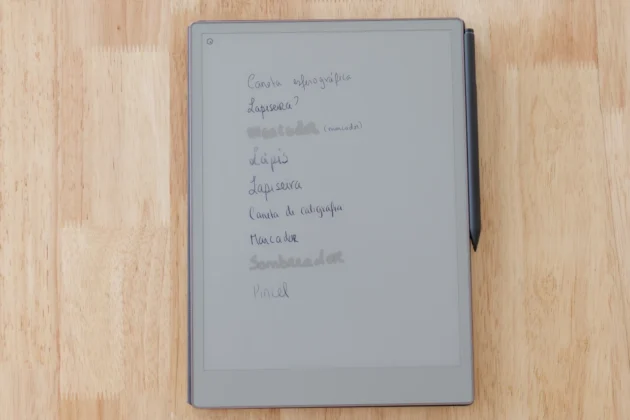 Caneta esferográfica
Lapiseira?
Marcador (marcador)
Lápis
Lapiseira
Caneta de caligrafia
Marcador
Sombreador
Pincel